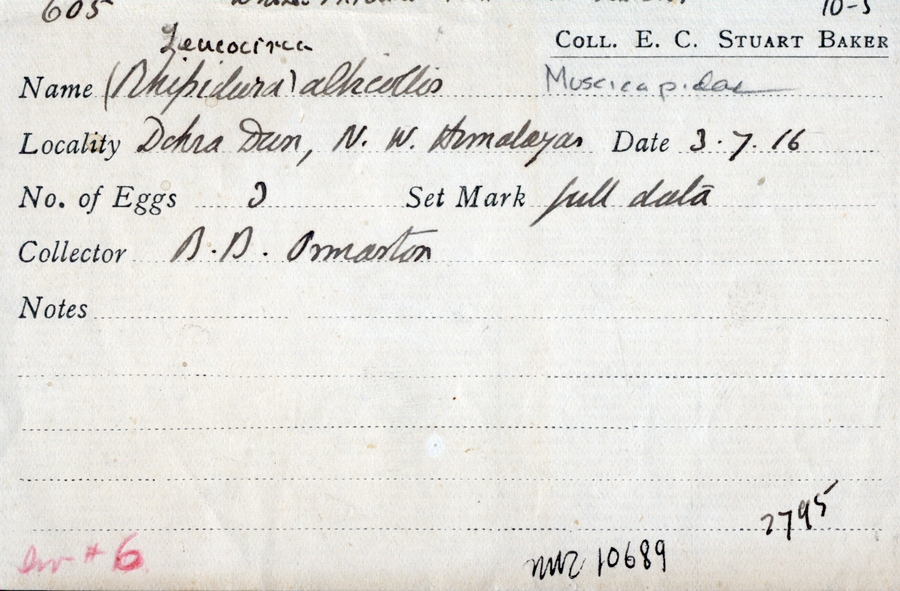 605 10-5
COLL. E. C. STUART BAKER
Leucocirca
Name (Rhipidura) albicollis Muscicapidae
Locality Dehra Dun, N. W. Himalayas Date 3.7.16
No. of Eggs 3 Set Mark full data
Collector B. B. Osmaston
Notes
2795
# 6 10689